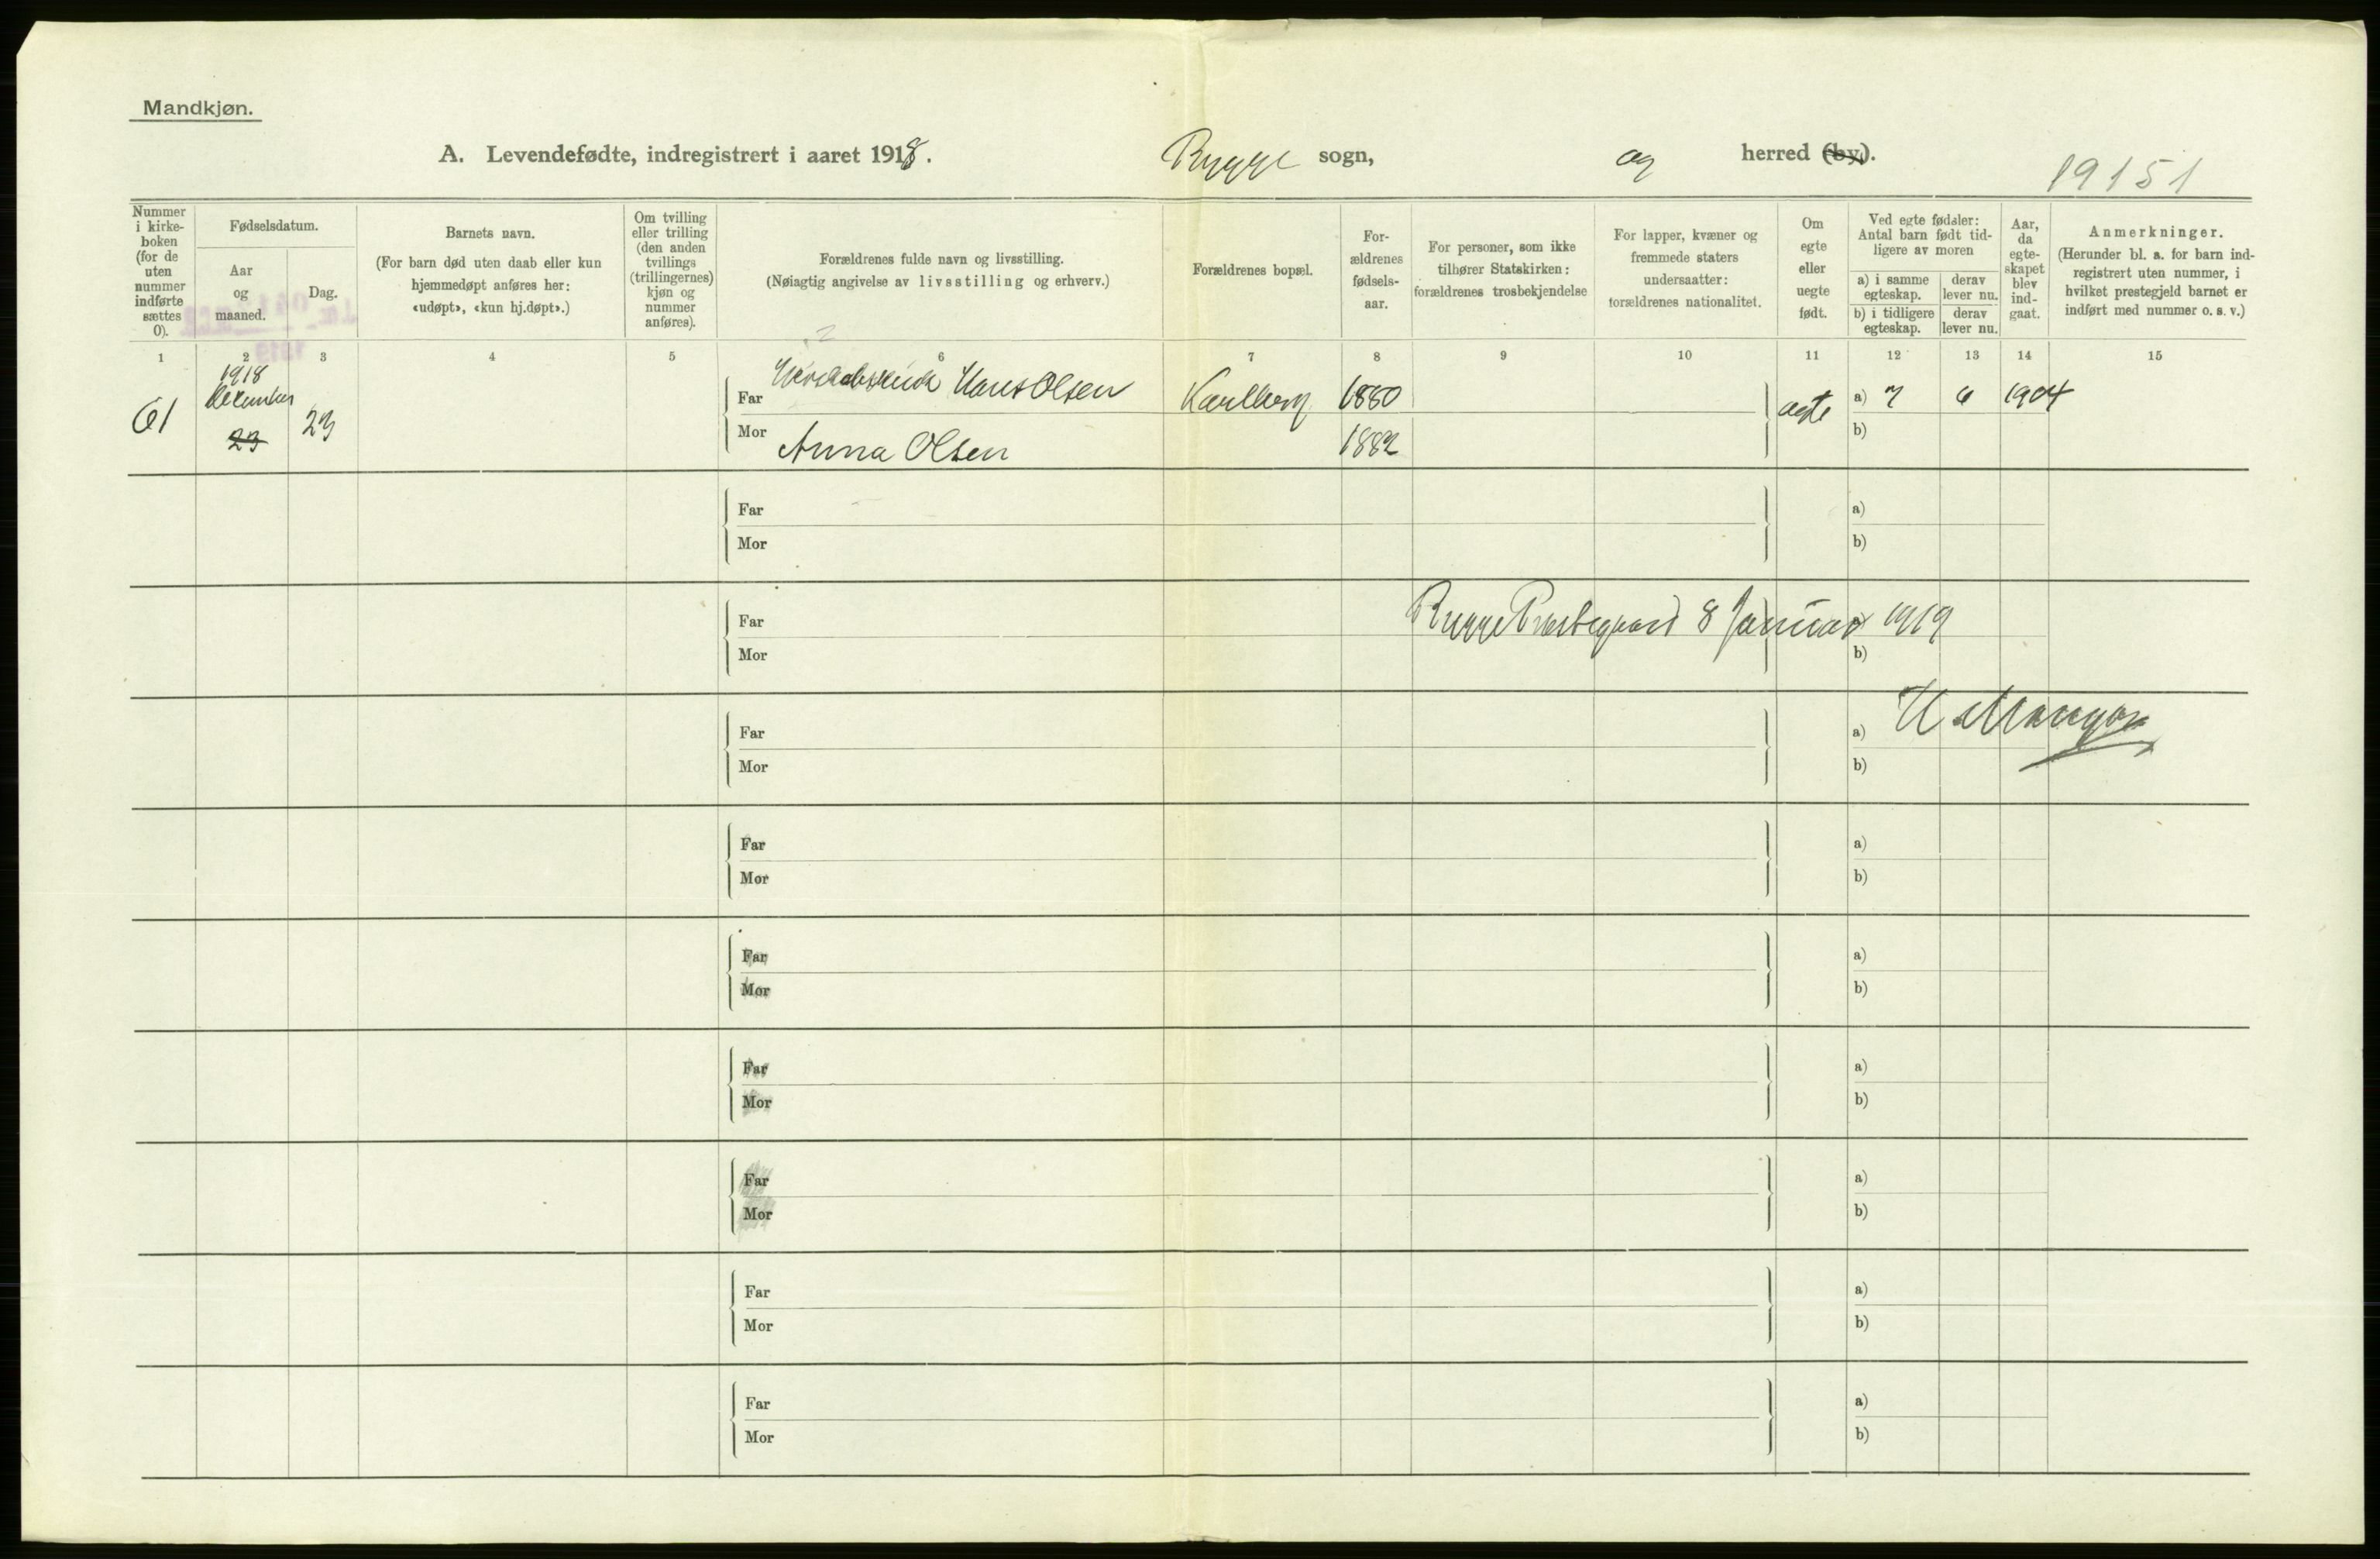 Mandkjøn.
A. Levendefødte, indregistrert i aaret 1918. Rygge sogn, og herred (by).
19151
Nummer i kirke-boken (for de uten nummer indførte sættes 0).
Fødselsdatum.
Aar og maaned.
Dag.
Barnets navn.
(For barn død uten daab eller kun hjemmedøpt anføres her: «udøpt», «kun hj.døpt».)
Om tvilling eller trilling (den anden tvillings (trillingernes) kjøn og nummer anføres).
Forældrenes fulde navn og livsstilling.
(Nøiagtig angivelse av livsstilling og erhverv.)
Forældrenes bopæl.
For-ældrenes fødsels-aar.
For personer, som ikke tilhører Statskirken: forældrenes trosbekjendelse
For lapper, kvæner og fremmede staters undersaatter: forældrenes nationalitet.
Om egte eller uegte født.
Ved egte fødsler:
Antal barn født tid-ligere av moren
a) i samme egteskap.
derav lever nu.
b) i tidligere egteskap.
derav lever nu.
Aar, da egte-skapet blev ind-gaat.
Anmerkninger.
(Herunder bl. a. for barn ind-registrert uten nummer, i hvilket prestegjeld barnet er indført med nummer o. s. v.)
1 2 3 4 5 6 7 8 9 10 11 12 13 14 15
61 1918 December 23 23 Far Hans Olsen Karlberg 1880 egte a) 7 6 1904
Mor Anna Olsen 1882 b)
Far a)
Mor b)
Far Rygge Prestegaard 8 Januar 1919
Mor b)
Far a)
Mor b)
Far a)
Mor b)
Far a)
Mor b)
Far a)
Mor b)
Far a)
Mor b)
Far a)
Mor b)
Far a)
Mor b)